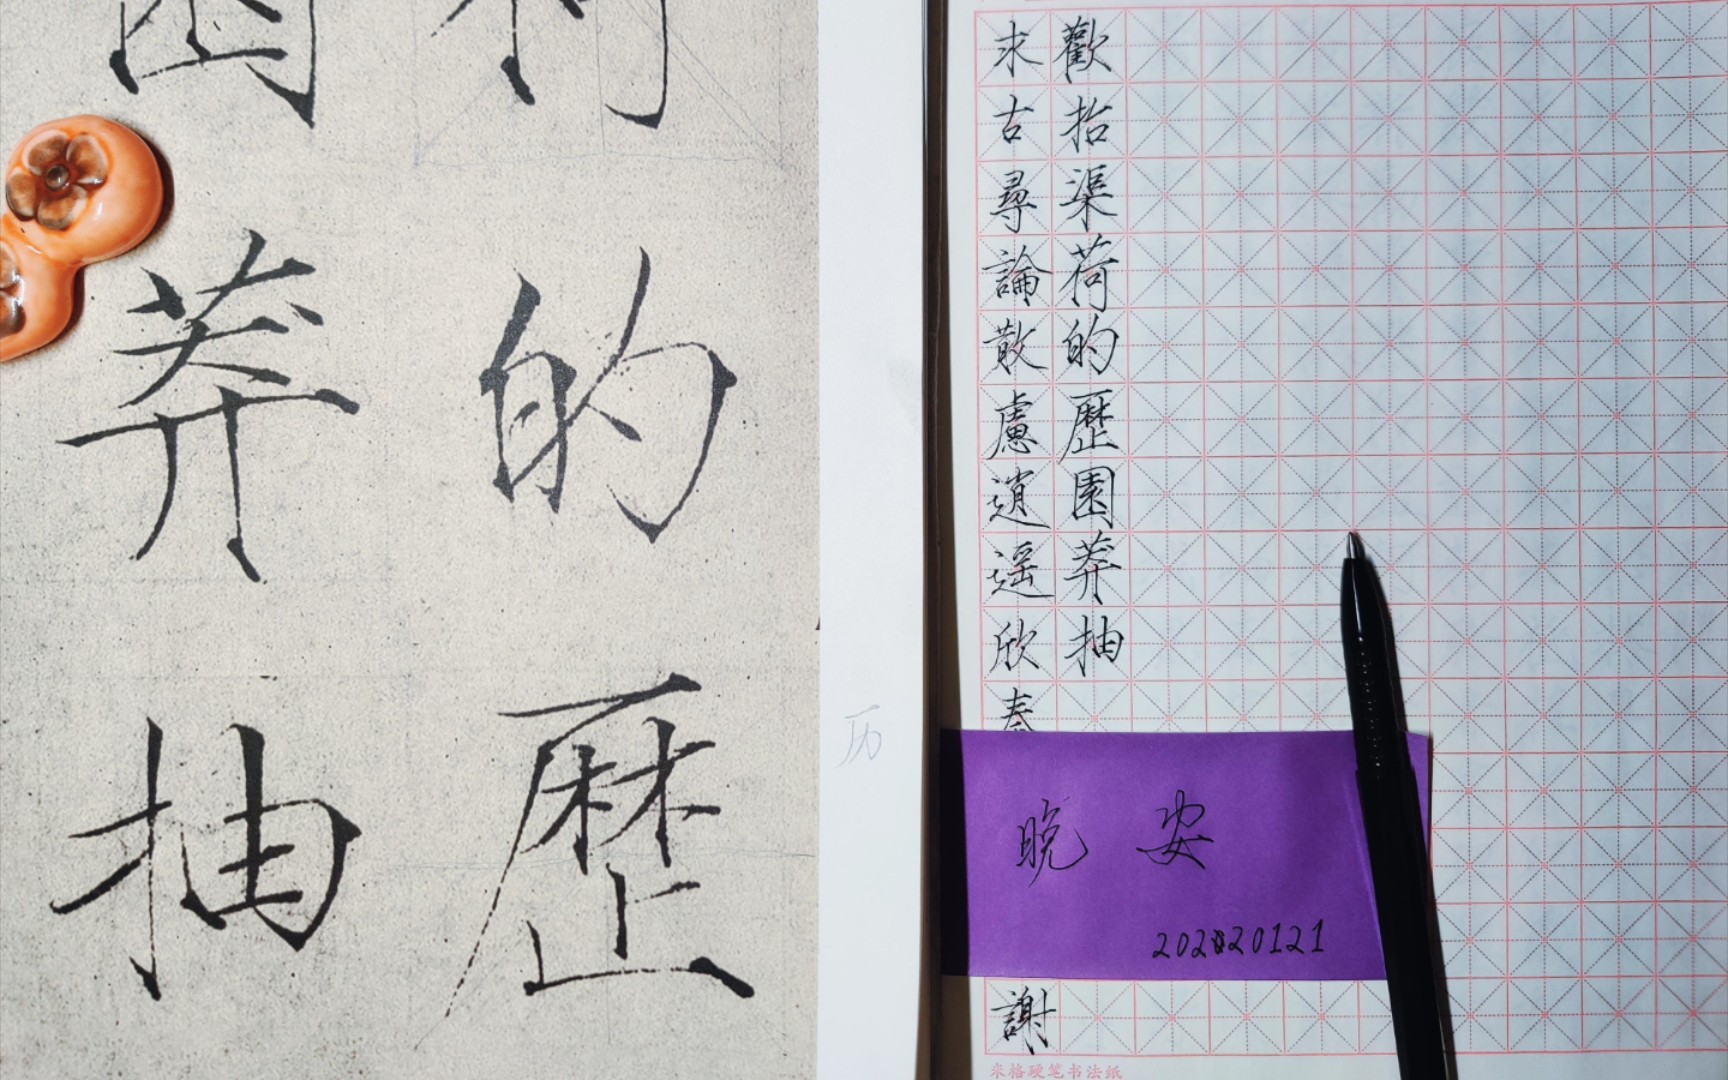 的歷
莽抽
历
求古尋論散慮逍遥欣奏
謝
歡招渠荷的歷園莽抽
晚安
20220121
米格硬笔书法纸